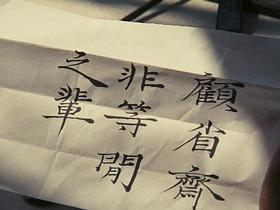 顧省齋
非等閒
之輩